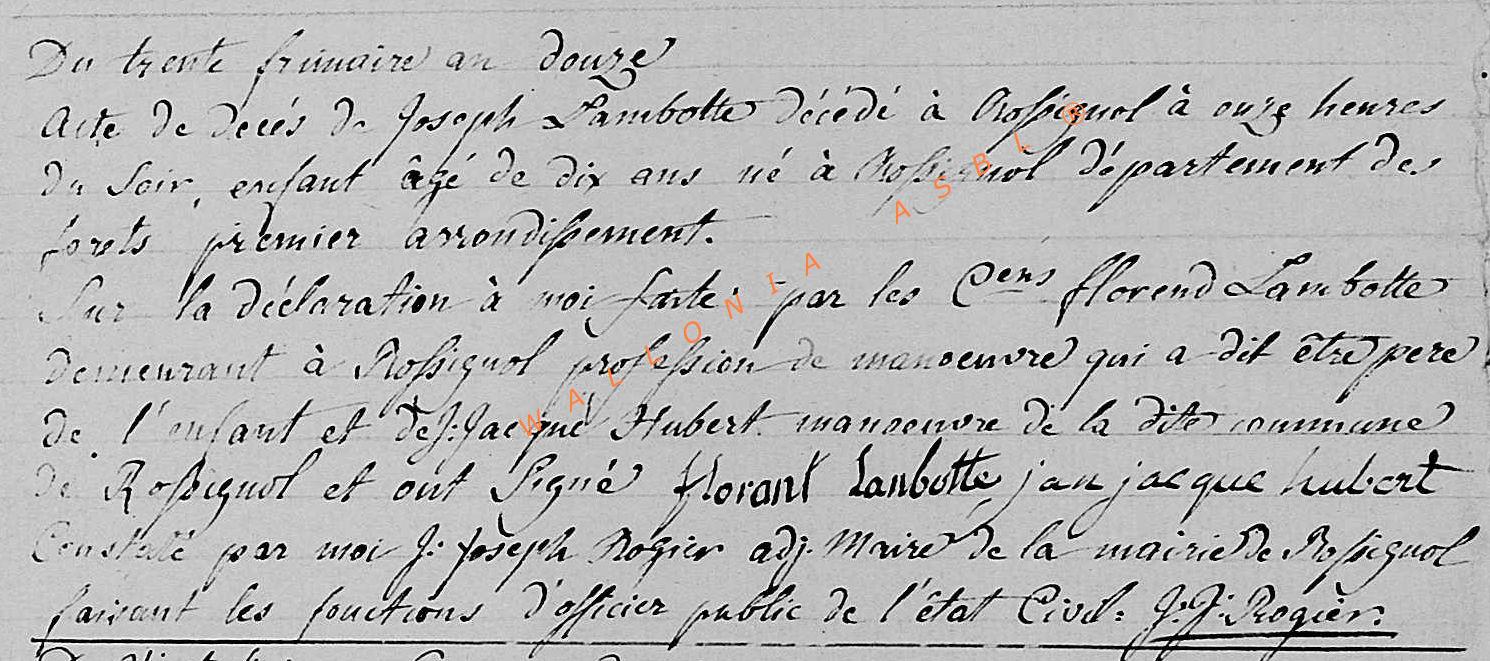 Du trente frimaire an douze
Acte de decés de Joseph Lambotte décédé à Rossignol à onze heures
du soir, enfant âgé de dix ans né à Rossignol département des
forets premier arrondissement.
Sur la déclaration à moi faite par les Cens florend Lambotte
demeurant à Rossignol profession de manoeuvre qui a dit être pere
de l'enfant et de J. Jacque Hubert manoeuvre de la dite commune
de Rossignol et ont signé florant Lanbotte jan jacque hubert
Constaté par moi J. Joseph Rogier adj. Maire de la mairie de Rossignol
faisant les fonctions d'officier public de l'état Civil: J. J. Rogier.
WALLONIA ASBL ®